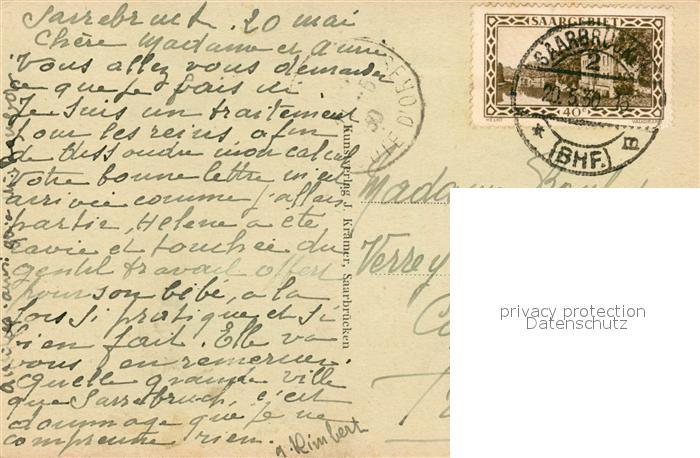 Sarrebruck, 20 mai
Chère Madame et Amie
Vous allez vous demander
ce que je fais ici
Je suis un traitement
pour les reins afin
de dissoudre mon calcul
Votre bonne lettre m'est
arrivée comme j'allais
partir, Hélène a été
ravie et touchée du
gentil travail offert
pour son bébé, a la
fois si pratique et si
bien fait. Elle va
vous en remercier.
Quelle grande ville
que Sarrebruck, c'est
dommage que je ne
comprenne rien.
a. Rimbert
Kunstverlag J. Krämer, Saarbrücken
SAARGEBIET
40
SAARBRÜCKEN
2
20.5.30. 15
* (BHF.) III *
Madame
Verrey
privacy protection
Datenschutz